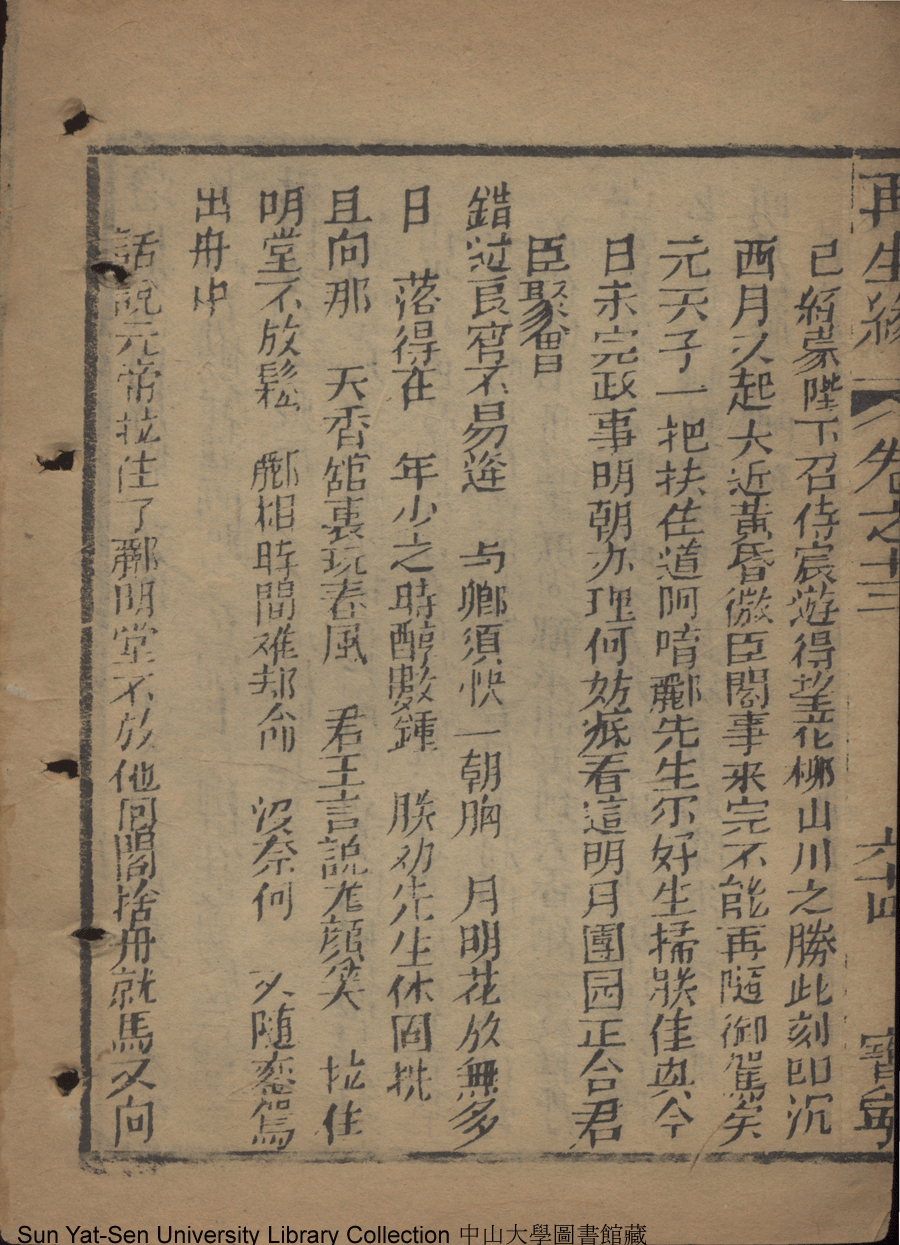 再生緣 卷之十三 六十四 寶
已經蒙陛下召侍宸遊得望花柳山川之勝此刻即沉
西月又起大近黃昏微臣閣事來完不能再隨御駕矣
元天子一把扶住道阿唷酈先生尔好生掃朕佳興今
日未完政事明朝办理何妨疵看這明月團园正合君
臣聚會
錯过良宵不易逢 与鄉須快一朝胸 月明花放無多
日 落得在 年少之時醇數鍾 朕劝先生休固執
且向那 天香舘裏玩春風 君王言說尨顏笑 拉住
明堂不放鬆 酈相時間难却俞 沒奈何 又隨鸾駕
出舟中
話說元帝拉住了酈明堂不放他回閣捨舟就馬又向
Sun Yat-Sen University Library Collection 中山大學圖書館藏